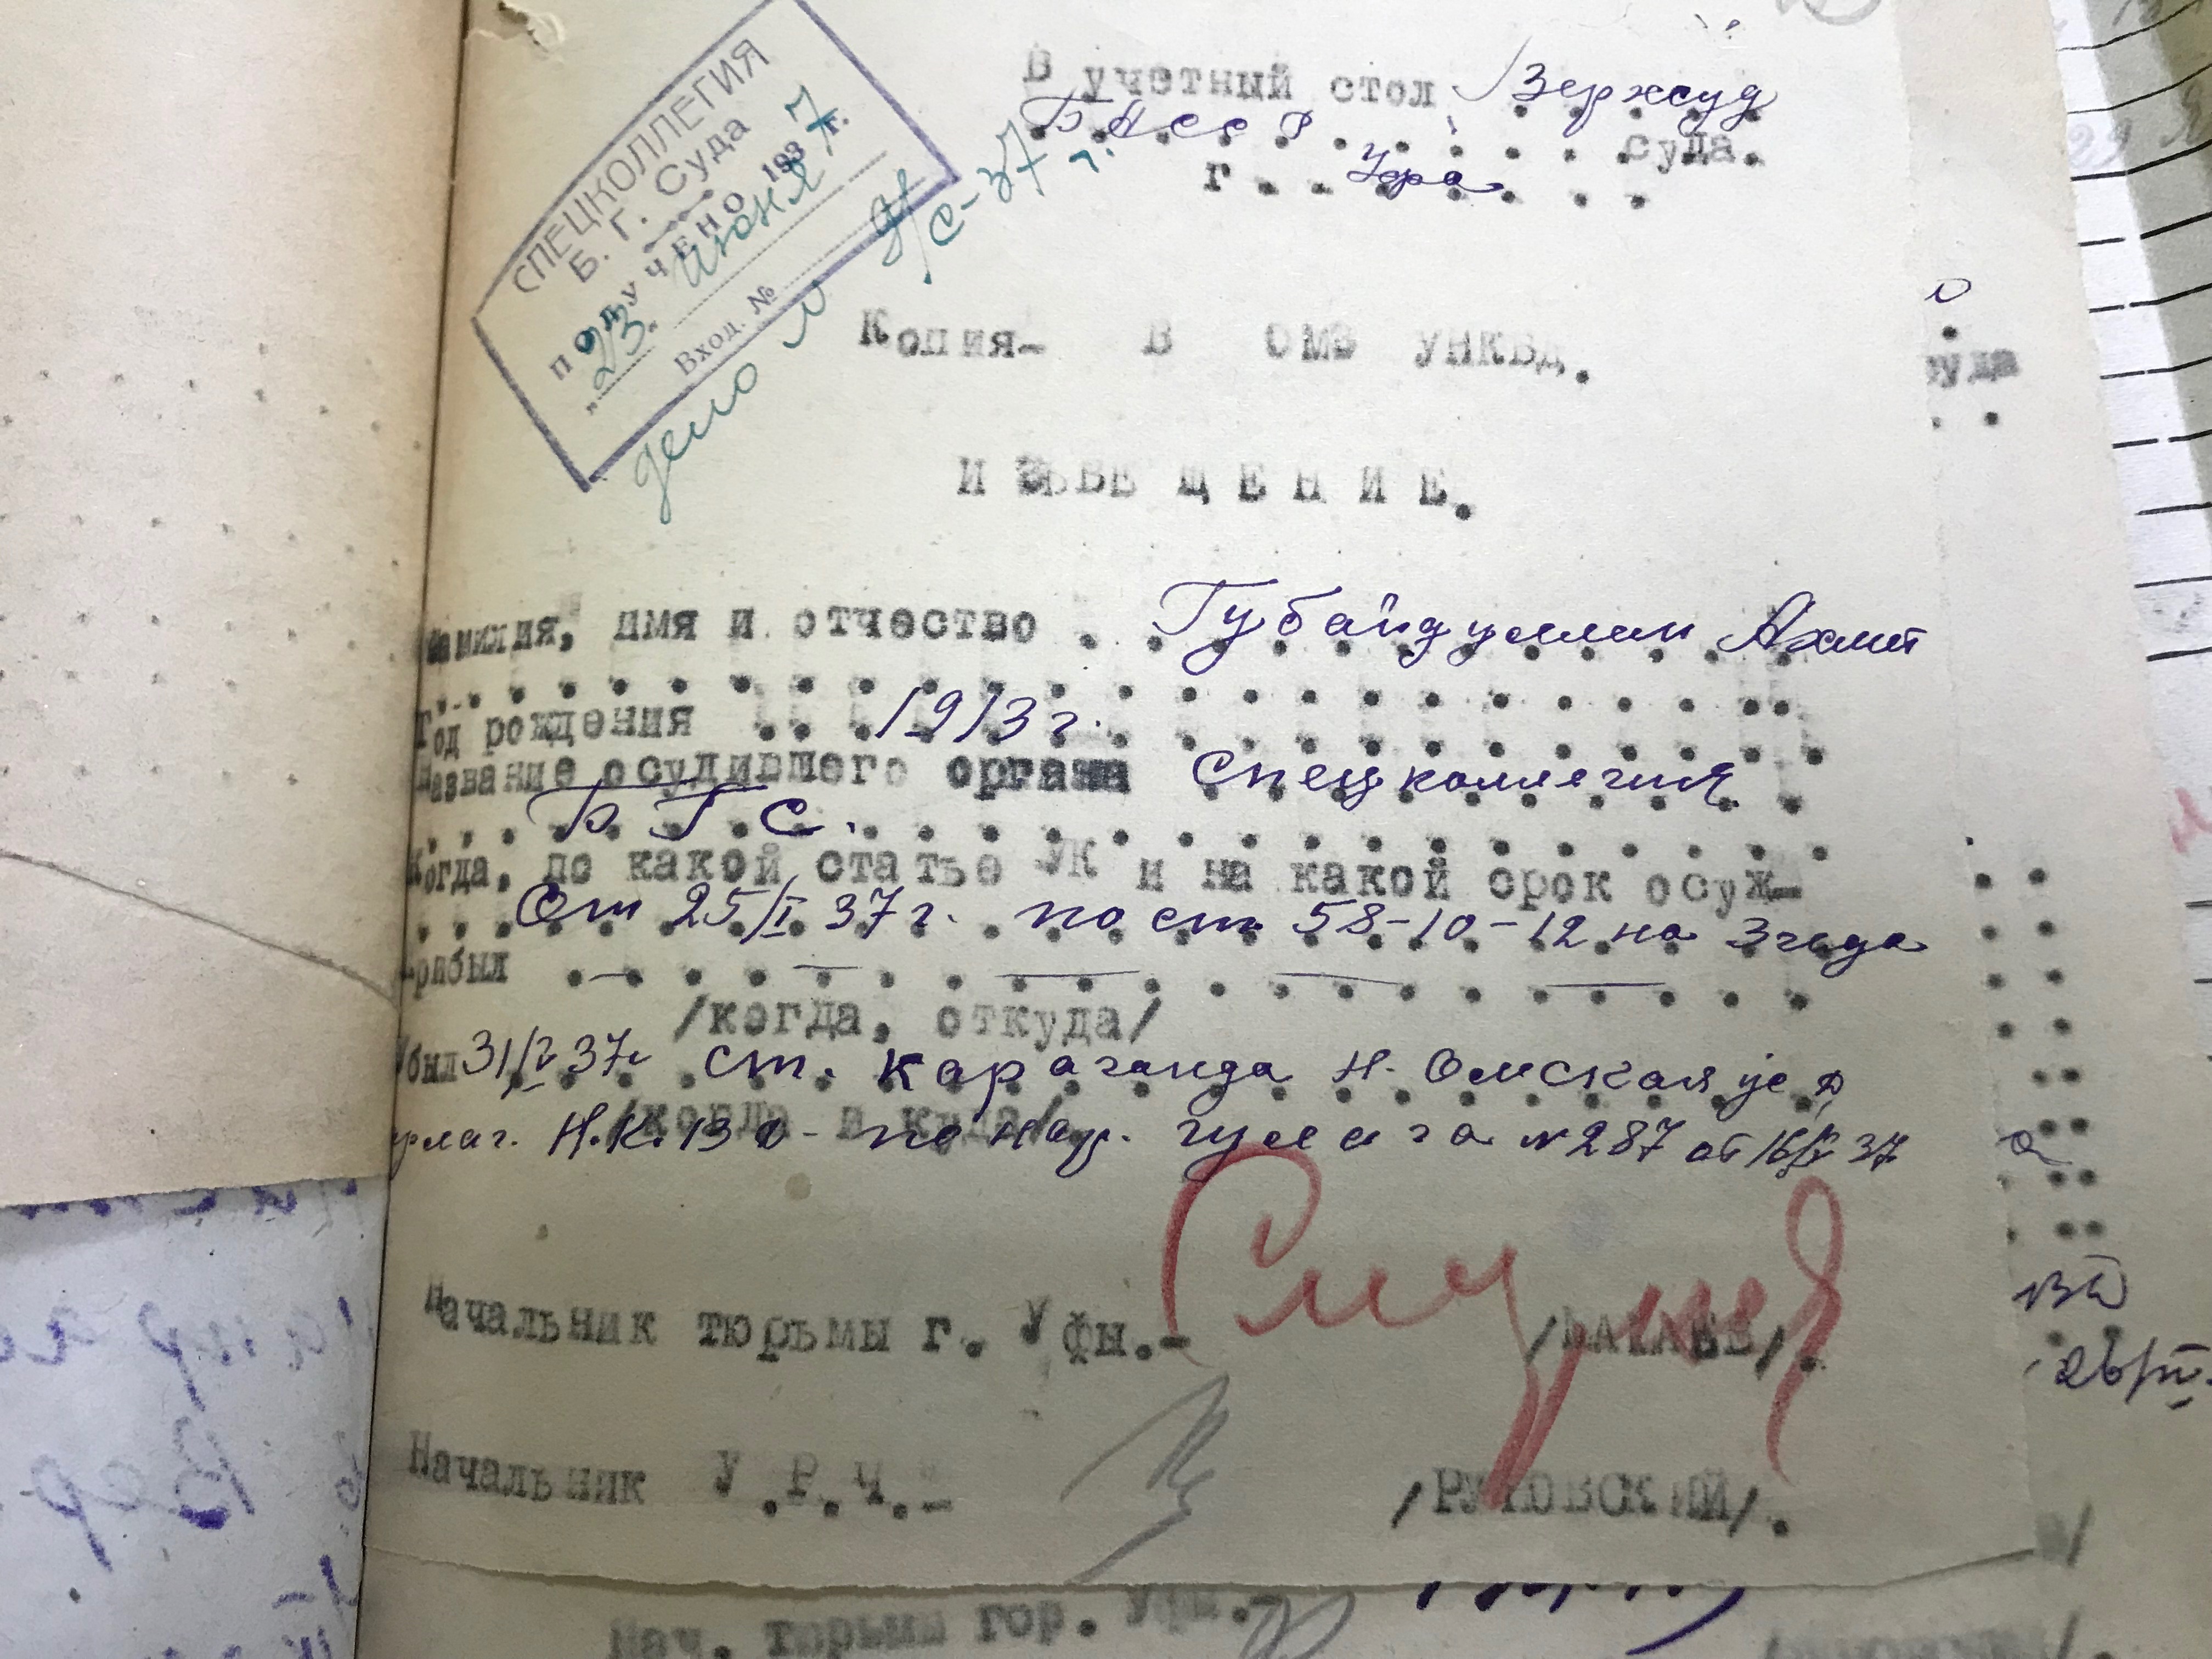 СПЕЦКОЛЛЕГИЯ
Б. Г. Суда
ПОЛУЧЕНО
"23" июня 1937 г.
Вход. №
дело № 9/с-37 г.
В учетный стол Верхсуд
БАССР суда.
г. Уфа
Копия- в ОМЗ УНКВД.
ИЗВЕЩЕНИЕ.
Фамилия, имя и отчество Губайдуллин Ахмет
Год рождения 1913 г.
Название осудившего органа Спецколлегия
Б Г С.
Когда, по какой статье УК и на какой срок осуж-
От 25/I 37 г. по ст 58-10-12 на 3 года
Прибыл
/когда, откуда/
Убыл 31/V 37г ст. Караганда Н-Омская
/когда и куда/
Н.К.В.Д- по нар. гулага № 287 от 16/V 37
Начальник тюрьмы г. Уфы.-
Начальник У.Р.Ч.-
Нач. тюрьмы гор. Уфы.-
суда